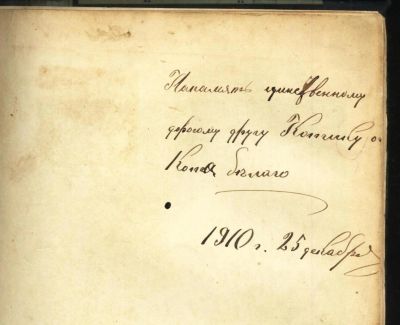 Напамять единственному
дорогому другу Котику о
Коня былаго
1910 г. 25 декабря